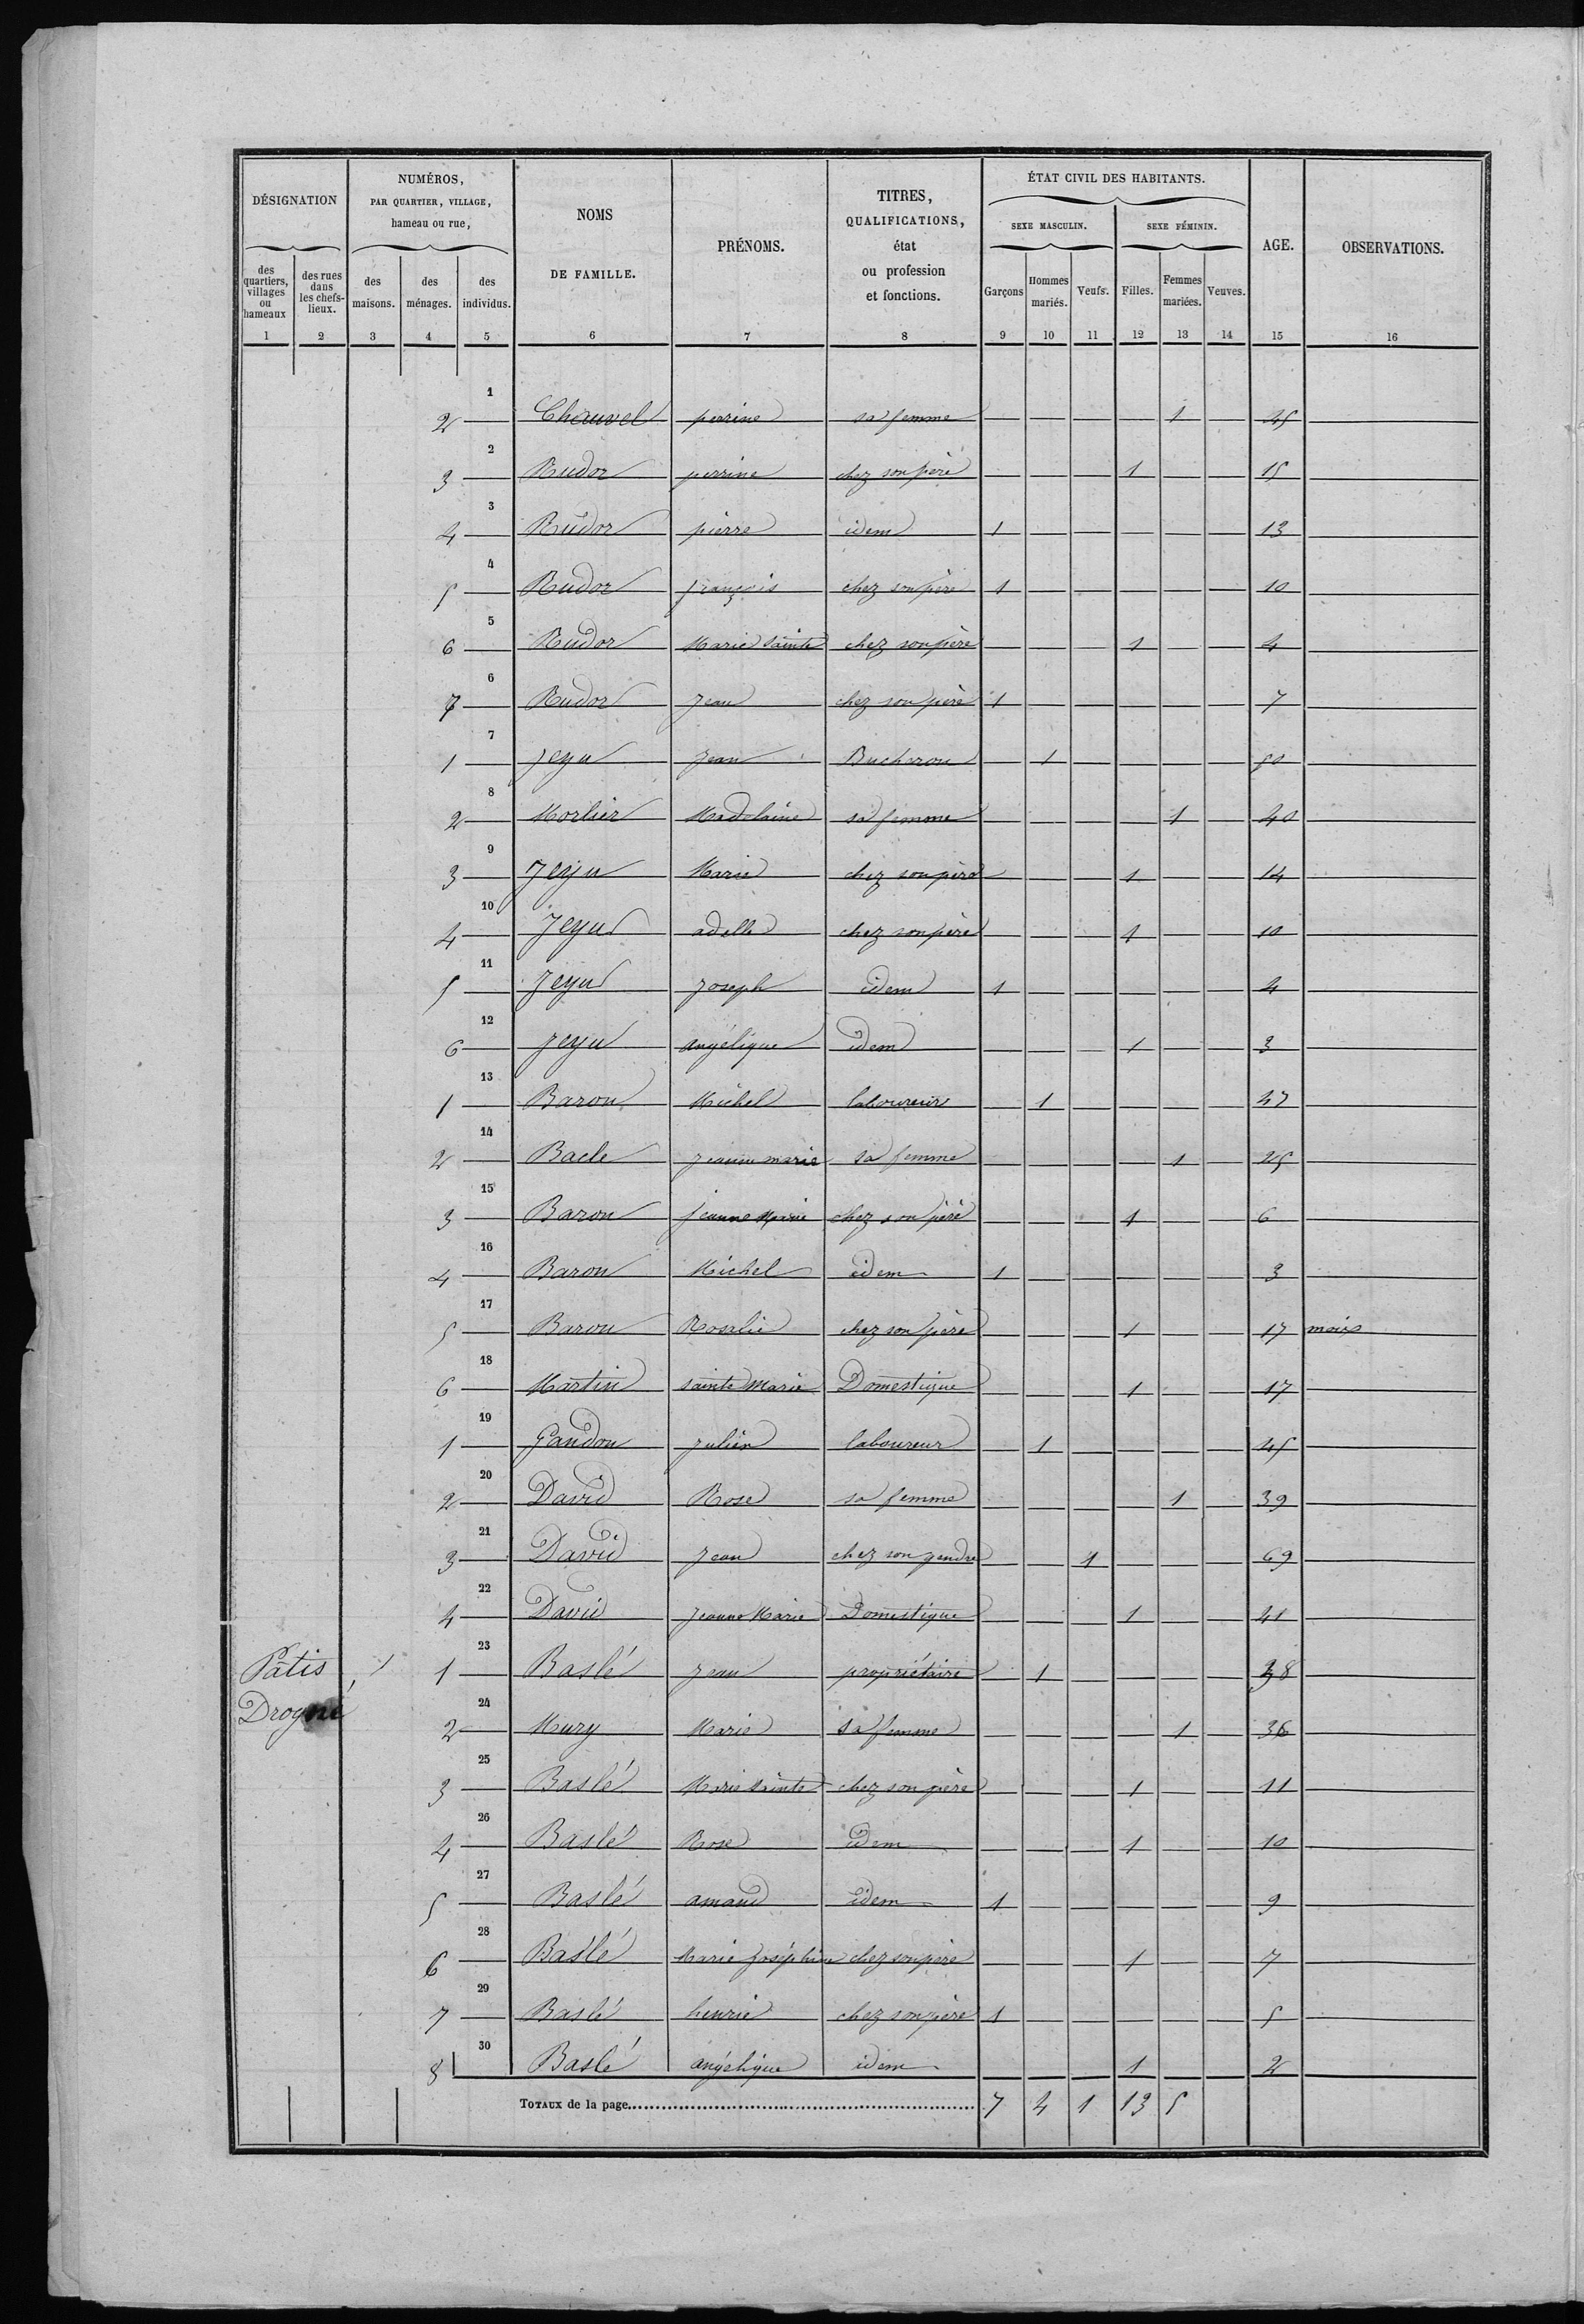 DÉSIGNATION
des quartiers, villages ou hameaux
des rues dans les chefs-lieux.
NUMÉROS,
PAR QUARTIER, VILLAGE,
hameau ou rue,
des maisons.
des ménages.
des individus.
NOMS
DE FAMILLE.
PRÉNOMS.
TITRES,
QUALIFICATIONS,
état
ou profession
et fonctions.
ÉTAT CIVIL DES HABITANTS.
SEXE MASCULIN.
SEXE FÉMININ.
Garçons
Hommes mariés.
Veufs.
Filles.
Femmes mariées.
Veuves.
AGE.
OBSERVATIONS.
1 2 3 4 5 6 7 8 9 10 11 12 13 14 15 16
1 2 Chauvel perrine sa femme 1 45
2 3 Rudor perrine chez son père 1 15
3 4 Rudor pierre idem 1 13
4 5 Rudor françois chez son père 1 10
5 6 Rudor Marie Sainte chez son père 1 4
6 7 Rudor Jean chez son père 1 7
7 1 Jeyu Jean Bucheron 1 50
8 2 Morlier Madelaine sa femme 1 40
9 3 Jeyu Marie chez son père 1 14
10 4 Jeyu adelle chez son père 1 10
11 5 Jeyu Joseph idem 1 4
12 6 Jeyu angélique idem 1 3
13 1 Baron Michel laboureur 1 47
14 2 Bacle Jeanne marie sa femme 1 25
15 3 Baron jeanne Marie chez son père 1 6
16 4 Baron Michel idem 1 3
17 5 Baron Rosalie chez son père 1 17 mois
18 6 Martin sainte Marie Domestique 1 17
19 1 Gandon Julien laboureur 1 45
20 2 David Rose sa femme 1 39
21 3 David Jean chez son gendre 1 69
22 4 David Jeanne Marie Domestique 1 41
Pâtis 1 23 1 Baslé Jean propriétaire 1 38
Drogné 24 2 Mury Marie sa femme 1 36
25 3 Baslé Marie Sainte chez son père 1 11
26 4 Baslé Rose idem 1 10
27 5 Baslé amand idem 1 9
28 6 Baslé Marie Joséphine chez son père 1 7
29 7 Baslé henrie chez son père 1 5
30 8 Baslé angélique idem 1 2
TOTAUX de la page 7 4 1 13 5